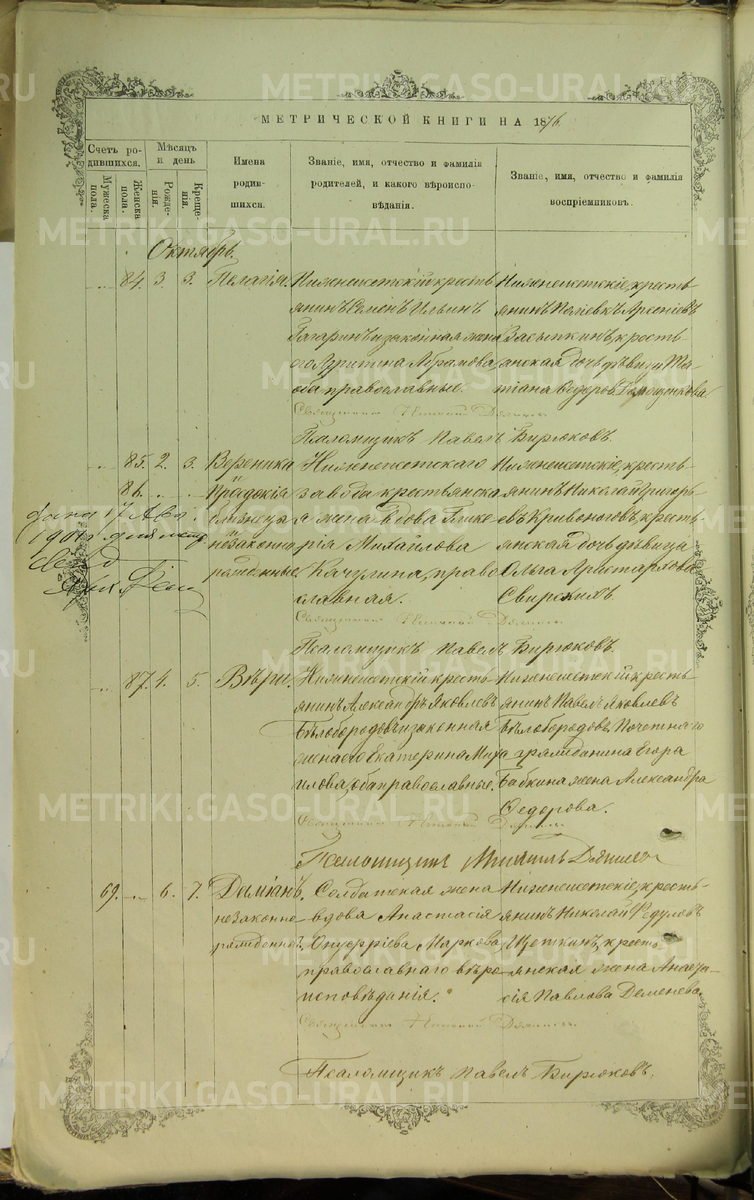 METRIKI.GASO-URAL.RU
МЕТРИЧЕСКОЙ КНИГИ НА 1876.
Счетъ родившихся.
Мужеска пола.
Женска пола.
Мѣсяцъ и день
Рожденія.
Крещенія.
Имена родившихся.
Званіе, имя, отчество и фамилія родителей, и какого вѣроисповѣданія.
Званіе, имя, отчество и фамилія воспріемниковъ.
Октябрь.
84. 3. 3. Пелагія.
Нижнеисетскій кресть-
янинъ Семенъ Ильинъ
Гагаринъ и законная жена
его Абрамова,
оба православные.
Нижнеисетскіе, кресть-
янинъ Арсеніевъ
Засыпкинъ, кресть-
янская дочь дѣвица Та-
тіана Ѳедорова
Псаломщикъ Павелъ Бирюковъ.
85. 2. 3. Вероника
86. и
близнеца
незаконно
рожденные.
Нижнеисетскаго
завода крестьянска
я жена вдова Глике
рія Михайлова
Качулина, право
славная.
Нижнеисетскіе, кресть-
янинъ Николай Григорь
евъ Кривоноговъ, кресть
янская дочь дѣвица
Ольга Аристархова
17
1901
Псаломщикъ Павелъ Бирюковъ.
87. 4. 5. Вѣра.
Нижнеисетскій кресть-
янинъ Александръ Яковлевъ
Бѣлобородовъ и законная
жена его Екатерина Миха
илова, оба православные.
Нижнеисетскій кресть
янинъ Павелъ Яковлевъ
Бѣлобородовъ, Почетнаго
гражданина Егора
Бабкина жена Александра
Ѳедорова.
Псаломщикъ Михаилъ
69. 6. 7. Даміанъ.
незаконно
рожденный.
Солдатская жена
вдова Анастасія
Онуфріева Маркова,
православнаго вѣро
исповѣданія.
Нижнеисетскіе, кресть-
янинъ Николай Федуловъ
Щеткинъ, кресть
янская жена Анаста
сія Павлова Деменева.
Псаломщикъ Павелъ Бирюковъ.